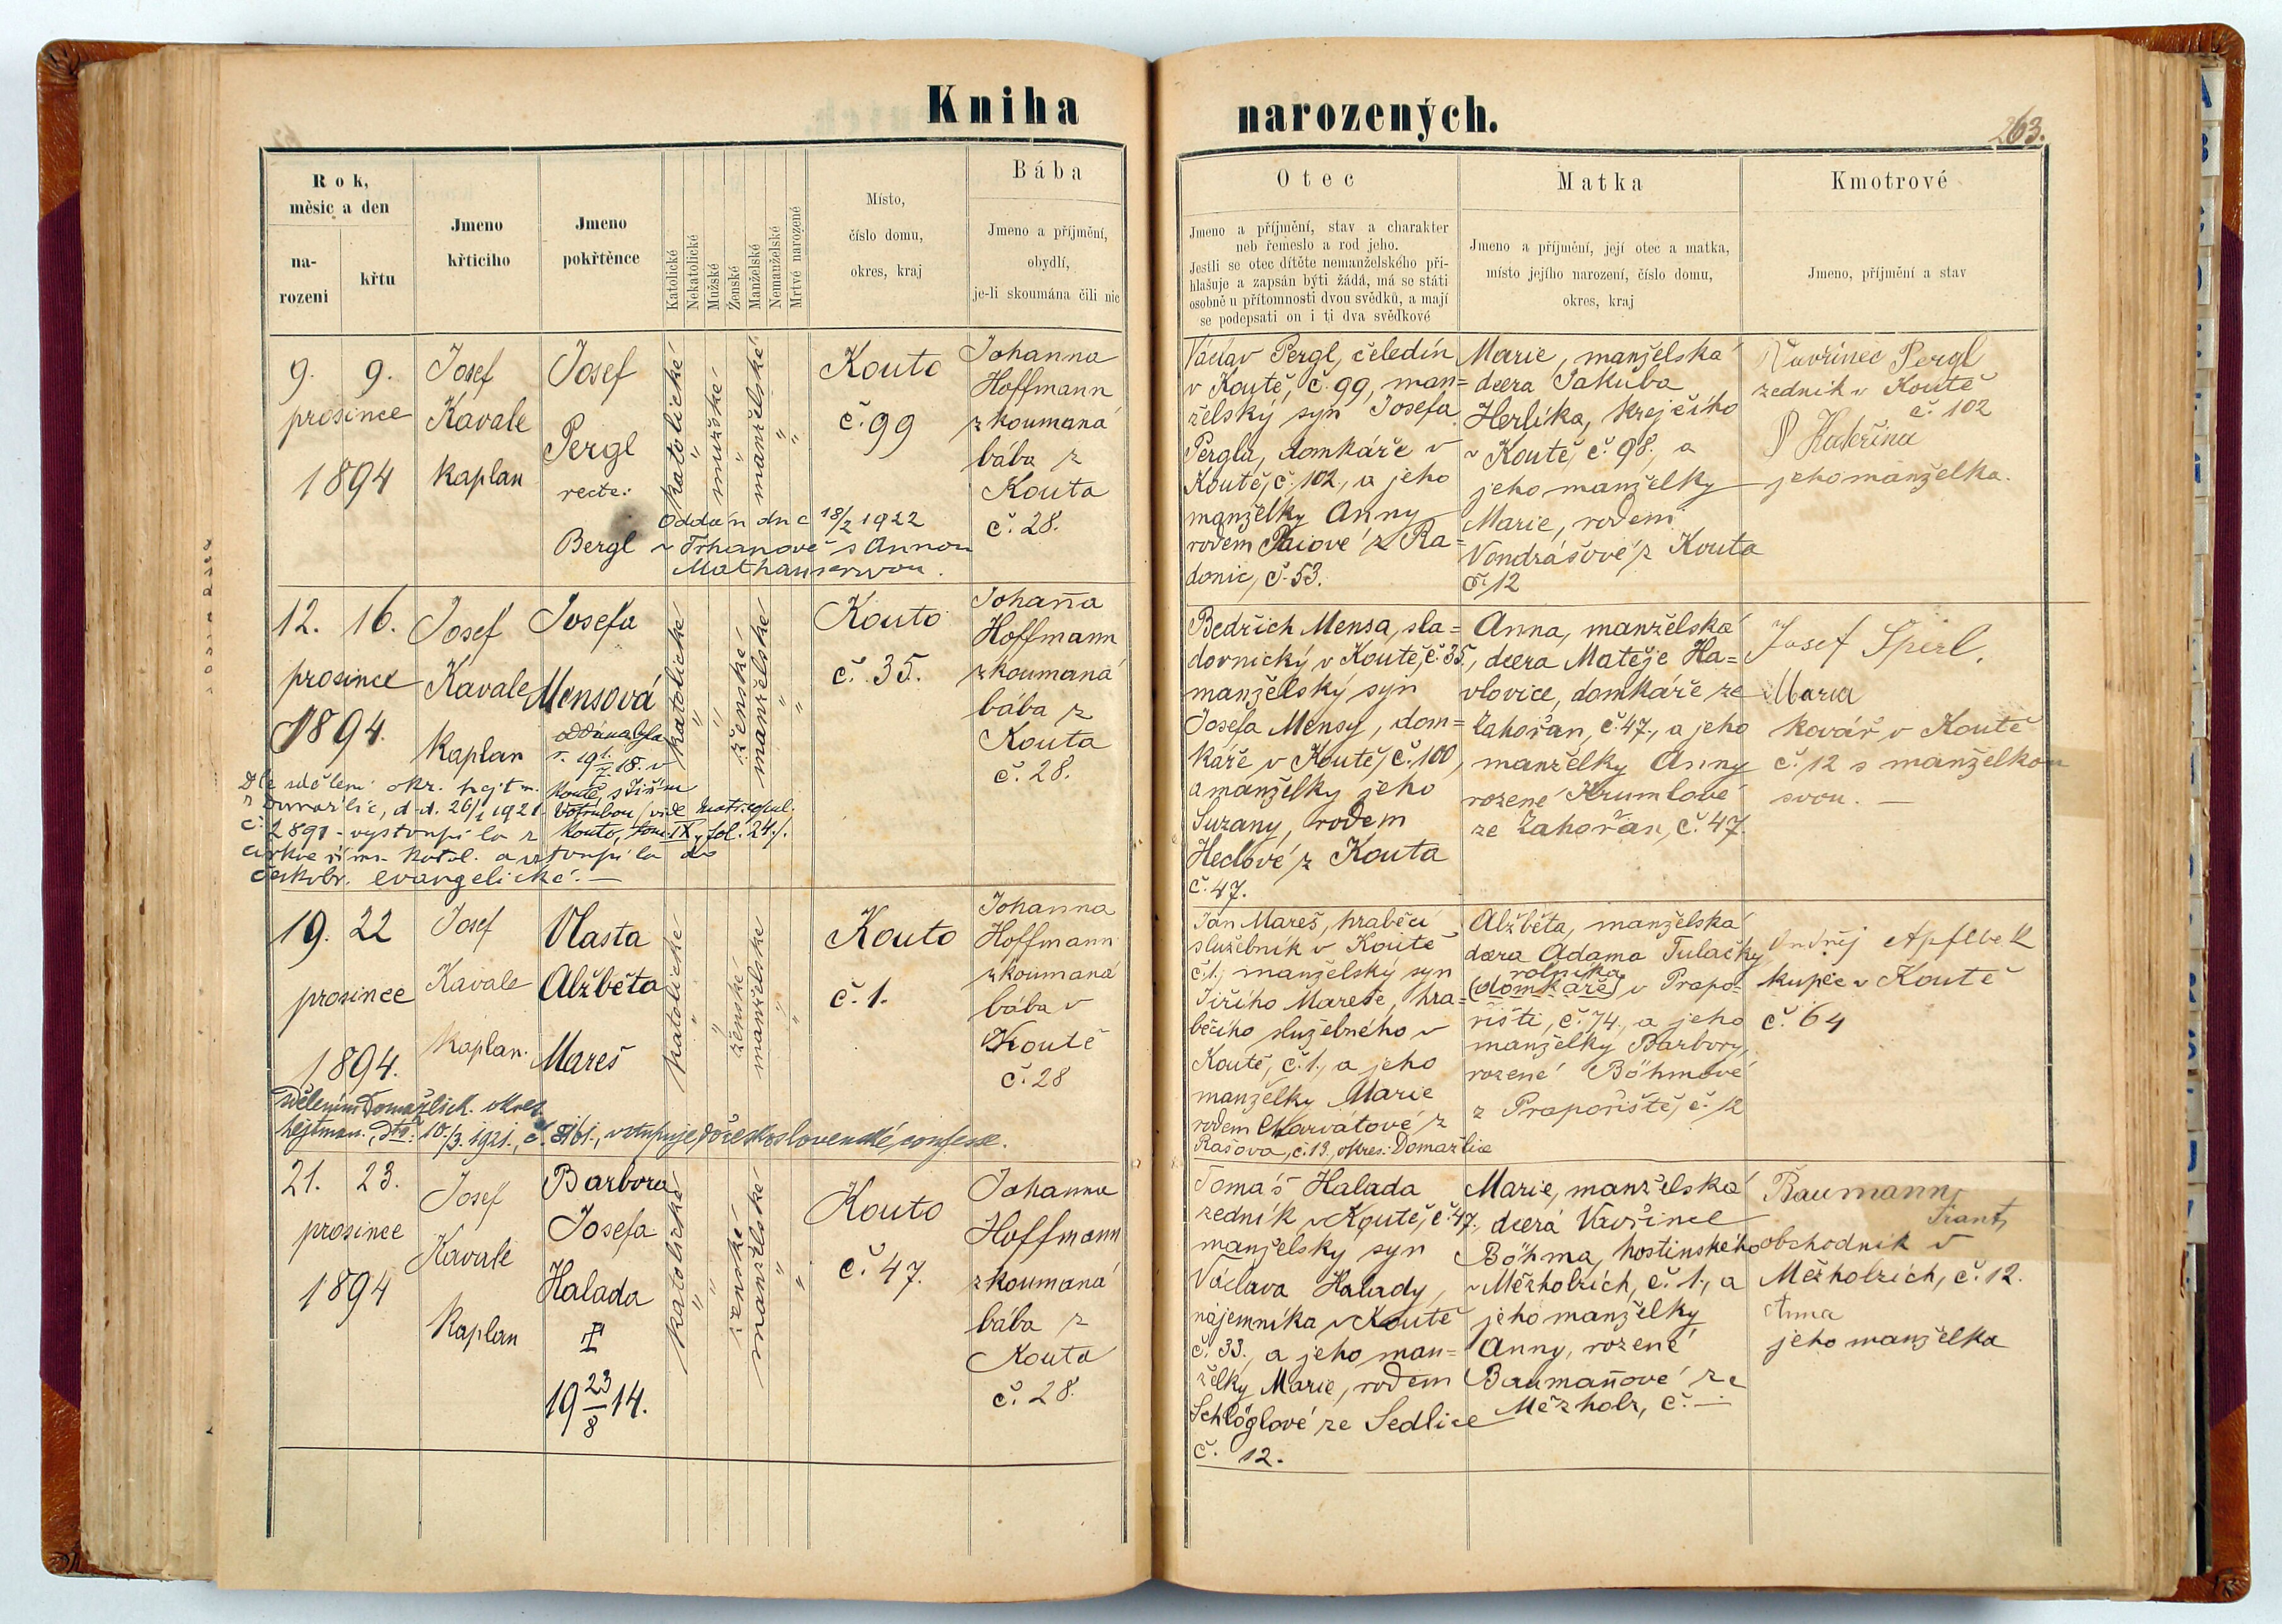 Kniha narozených.
263.
Rok,
měsíc a den
na-
rozeni
křtu
Jmeno
křticího
Jmeno
pokřtěnce
Katolické
Nekatolické
Mužské
Ženské
Manželské
Nemanželské
Mrtvě narozené
Místo,
číslo domu,
okres, kraj
Bába
Jmeno a příjmění,
obydlí,
je-li skoumána čili nic
Otec
Jmeno a příjmění, stav a charakter
neb řemeslo a rod jeho.
Jestli se otec dítěte nemanželského při-
hlašuje a zapsán býti žádá, má se státi
osobně u přítomnosti dvou svědků, a mají
se podepsati on i ti dva svědkové
Matka
Jmeno a příjmění, její otec a matka,
místo jejího narození, číslo domu,
okres, kraj
Kmotrové
Jmeno, příjmění a stav
9. 9.
prosince
1894
Josef
Kavale
kaplan
Josef
Pergl
recte:
Bergl
katolické
"
mužské
"
manželské
"
"
Oddán dne 18/2 1922
v Trhanově s Annou
Mathauserovou.
Kouto
č. 99
Johanna
Hoffmann
zkoumaná
bába z
Kouta
č. 28.
Václav Pergl, čeledín
v Koutě, č. 99, man=
želský syn Josefa
Pergla, domkáře v
Koutě, č. 102, a jeho
manželky Anny
rodem Paiové z Ra=
donic, č. 53.
Marie, manželská
dcera Jakuba
Herlíka, krejčího
v Koutě, č. 98, a
jeho manželky
Marie, rodem
Vondrášové z Kouta
č. 12
Vavřinec Pergl
zedník v Koutě
č. 102
Kateřina
jeho manželka.
12. 16.
prosince
1894.
Josef
Kavale
kaplan
Josefa
Mensová
oddána
r. 19 1/7 18. v
Koutě, s Jiřím
Votrubou (viz matr. copul.
Kouto, tom. IX, fol. 24.).
Dle sdělení okr. hejtm.
v Domažlic, d. d. 26/1 1921
č. 2891 - vystoupila z
církve řím. katol. a vstoupila do
českobr. evangelické. —
katolické
"
"
ženské
manželské
"
"
Kouto
č. 35.
Johaña
Hoffmann
zkoumaná
bába z
Kouta
č. 28.
Bedřich Mensa, sla=
dovnický v Koutě, č. 35,
manželský syn
Josefa Mensy, dom=
káře v Koutě, č. 100,
a manželky jeho
Suzany, rodem
Heclové z Kouta
č. 47.
Anna, manželská
dcera Matěje Ha=
vlovice, domkáře ze
Zahořan, č. 47., a jeho
manželky Anny
rozené Krumlové
ze Zahořan, č. 47.
Josef Šperl,
Maria
kovář v Koutě
č. 12 s manželkou
svou. —
19. 22
prosince
1894.
Josef
Kavale
kaplan.
Vlasta
Alžběta
Mareš
sdělením Domažlick. okres.
hejtman., dto. 10./3. 1921., vstupuje do československé confesse.
katolické
"
"
ženské
manželské
"
"
Kouto
č. 1.
Johanna
Hoffmann
zkoumaná
bába v
Koutě
č. 28
Jan Mareš, hraběcí
služebník v Koutě
č. 1., manželský syn
Jiřího Mareše, hra=
běcího služebného v
Koutě, č. 1., a jeho
manželky Marie
rodem Charvátové z
Rašova, č. 13, okres: Domažlice
Alžběta, manželská
dcera Adama Tulačky
rolníka
(domkáře) v Prapo-
řišti, č. 74., a jeho
manželky Barbory,
rozené Böhmové
z Prapořiště, č. 12
Ondřej Apflbek
kupec v Koutě
č. 64
21. 23.
prosince
1894
Josef
Kavale
kaplan
Barbora
Josefa
Halada
19 23/8 14.
katolické
"
"
ženské
manželské
"
"
Kouto
č. 47.
Johanna
Hoffmann
zkoumaná
bába z
Kouta
č. 28.
Tomáš Halada
zedník v Koutě, č. 47.,
manželský syn
Václava Halady,
nájemníka v Koutě
č. 33., a jeho man=
želky Marie, rodem
Schlöglové ze Sedlice
č. 12.
Marie, manželská
dcera Vavřince
Böhma, hostinského
v Mežholzích, č. 1., a
jeho manželky
Anny, rozené
Baumañové ze
Mežholz, č. —
Baumann,
Frant,
obchodník v
Mežholzích, č. 12.
Anna
jeho manželka